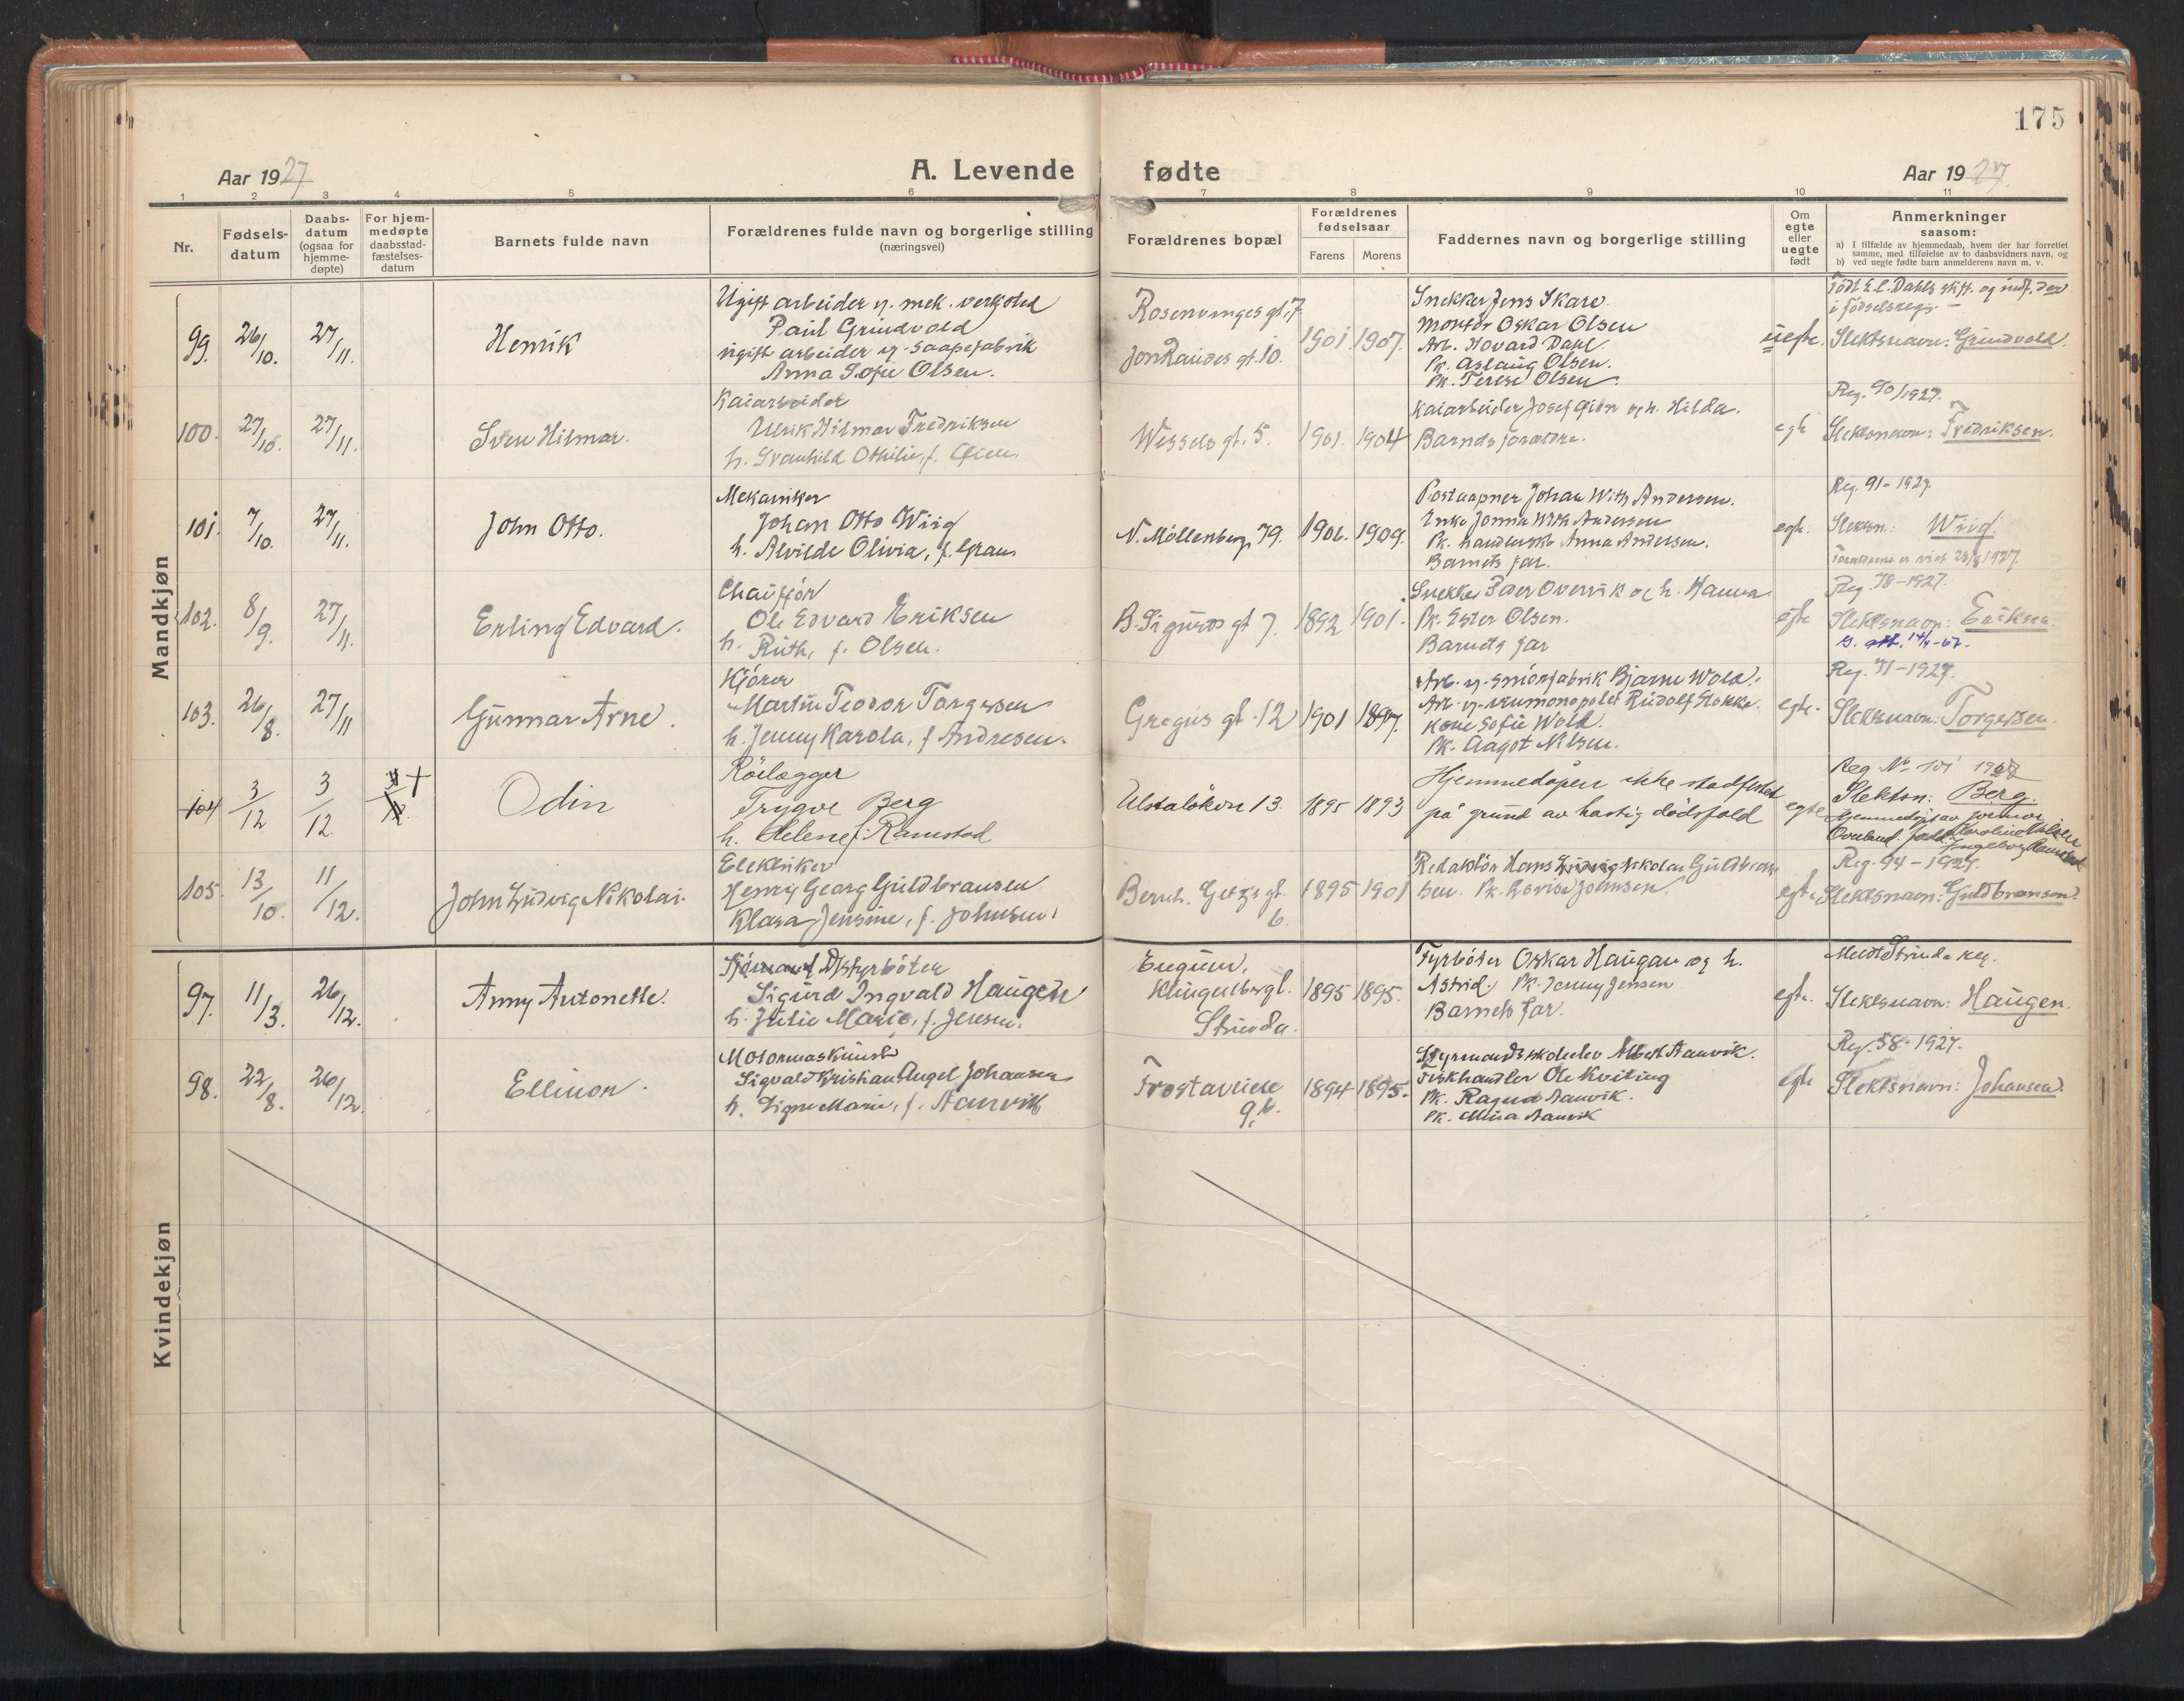 175
Aar 1927
A. Levende
fødte
Aar 1927
1 2 3 4 5 6 7 8 9 10 11
Nr.
Fødsels-
datum
Daabs-
datum
(ogsaa for
hjemme-
døpte)
For hjem-
medøpte
daabsstad-
fæstelses-
datum
Barnets fulde navn
Forældrenes fulde navn og borgerlige stilling
(næringsvei)
Forældrenes bopæl
Forældrenes
fødselsaar
Farens Morens
Faddernes navn og borgerlige stilling
Om
egte
eller
uegte
født
Anmerkninger
saasom:
a) I tilfælde av hjemmedaab, hvem der har forrettet
samme, med tilføielse av to daabsvidners navn, og
b) ved uegte fødte barn anmelderens navn m. v.
Mandkjøn
99. 26/10. 27/11.
Henrik
Ugift arbeider v. mek. verksted
Paul Grindvold
ugift arbeider v. saapefabrik
Anna Sofie Olsen.
Rosenvinges gt. 7
Jon Raudes gt. 10.
1901. 1907.
Snekker Jens Skare
Montör Oskar Olsen
Arb. Hovard Dahl.
Pk. Aslaug Olsen.
Pk. Terese Olsen
uegte.
Födt E.C. Dahls stift. og indf. der
i födselsregs.
Slektsnavn: Grindvold.
100. 27/10. 27/11.
Sven Hilmar.
Kaiarbeider
Ulrik Hilmar Fredriksen
h. Svanhild Othilie, f. Olsen.
Wessels gt. 5.
1901. 1904
Kaiarbeider Josef Gion og h. Hilda.
Barnets forældre.
egte
Reg. 90/1927.
Slektsnavn: Fredriksen.
101. 7/10. 27/11.
John Otto.
Mekaniker
Johan Otto Wiig
h. Alvilde Olivia, f. Gran.
N. Möllenberg 79.
1906. 1909.
Postaapner Johan With Andersen.
Enke Jonna With Andersen
Pk. handlersk. Anna Andersen.
Barnets far.
egte.
Reg. 91-1927.
Slektsn.: Wiig.
Forældrene er viet 28/8 1927.
102. 8/9. 27/11.
Erling Edvard.
Chauffør
Ole Edvard Eriksen
h. Ruth, f. Olsen.
B. Sigurds gt 7.
1892 1901.
Snekker Peder Overvik og h. Hanna
Pk. Ester Olsen.
Barnets far
egte
Reg. 78-1927.
Slektsnavn: Eriksen.
103. 26/8. 27/11
Gunnar Arne.
Kjörer
Martin Teodor Torgersen
h. Jenny Karola, f. Andresen.
Gregus gt. 12
1901 1897.
Arb. v. smörfabrik Bjarne Wold.
Arb. v. vinmonopolet Rudolf Stokke.
Kone Sofie Wold.
Pk. Aagot Nilsen.
egte.
Reg. 71-1927.
Slektsnavn: Torgersen.
104 3/12 3/12. 3/12. †
Odin
Rörlægger
Trygve Berg
h. Helene f. Ramstad
Ulstadlökken 13.
1895 1893
Hjemmedåpen ikke stadfestet
på grund av hastig dödsfald
egte
Reg. No 101 1927
Slektsn: Berg.
Hjemmedöpt av jordmor
Overland. fadd. Karoline Nilsen
Ingeborg Ramstad
105. 13/10. 11/12.
John Ludvig Nikolai.
Elektriker
Henry Georg Guldbransen
Klara Jensine, f. Johnsen.
Bernh. Getzs gt.
6.
1895 1901
Redaktör Hans Ludvig Nikolai Guldbran-
sen. Pk. Lovise Johnsen.
egte
Reg. 94-1927.
Slektsnavn: Guldbransen.
Kvindekjøn
97. 11/3. 26/12.
Anny Antonette.
Sjömand fyrböter
Sigurd Ingvald Haugen
h. Julie Marie, f. Jensen.
Engum,
Klingenbergt.
Strinda.
1895 1895.
Fyrböter Oskar Haugan og h.
Astrid, Pk. Jenny Jensen
Barnets far.
egte.
Meldt Strinda reg.
Slektsnavn: Haugen.
98. 22/8. 26/12.
Ellinor.
Motormaskinist
Sigvald Kristian Angel Johansen
h. Signe Marie, f. Aanvik
Frostaveien
9b.
1894 1895.
Styrmandsskoleelev Albert Aanvik.
Fiskhandler Ole Kviting
Pk. Ragna Aanvik.
Pk. Mina Aanvik
egte
Reg. 58-1927.
Slektsnavn: Johansen.